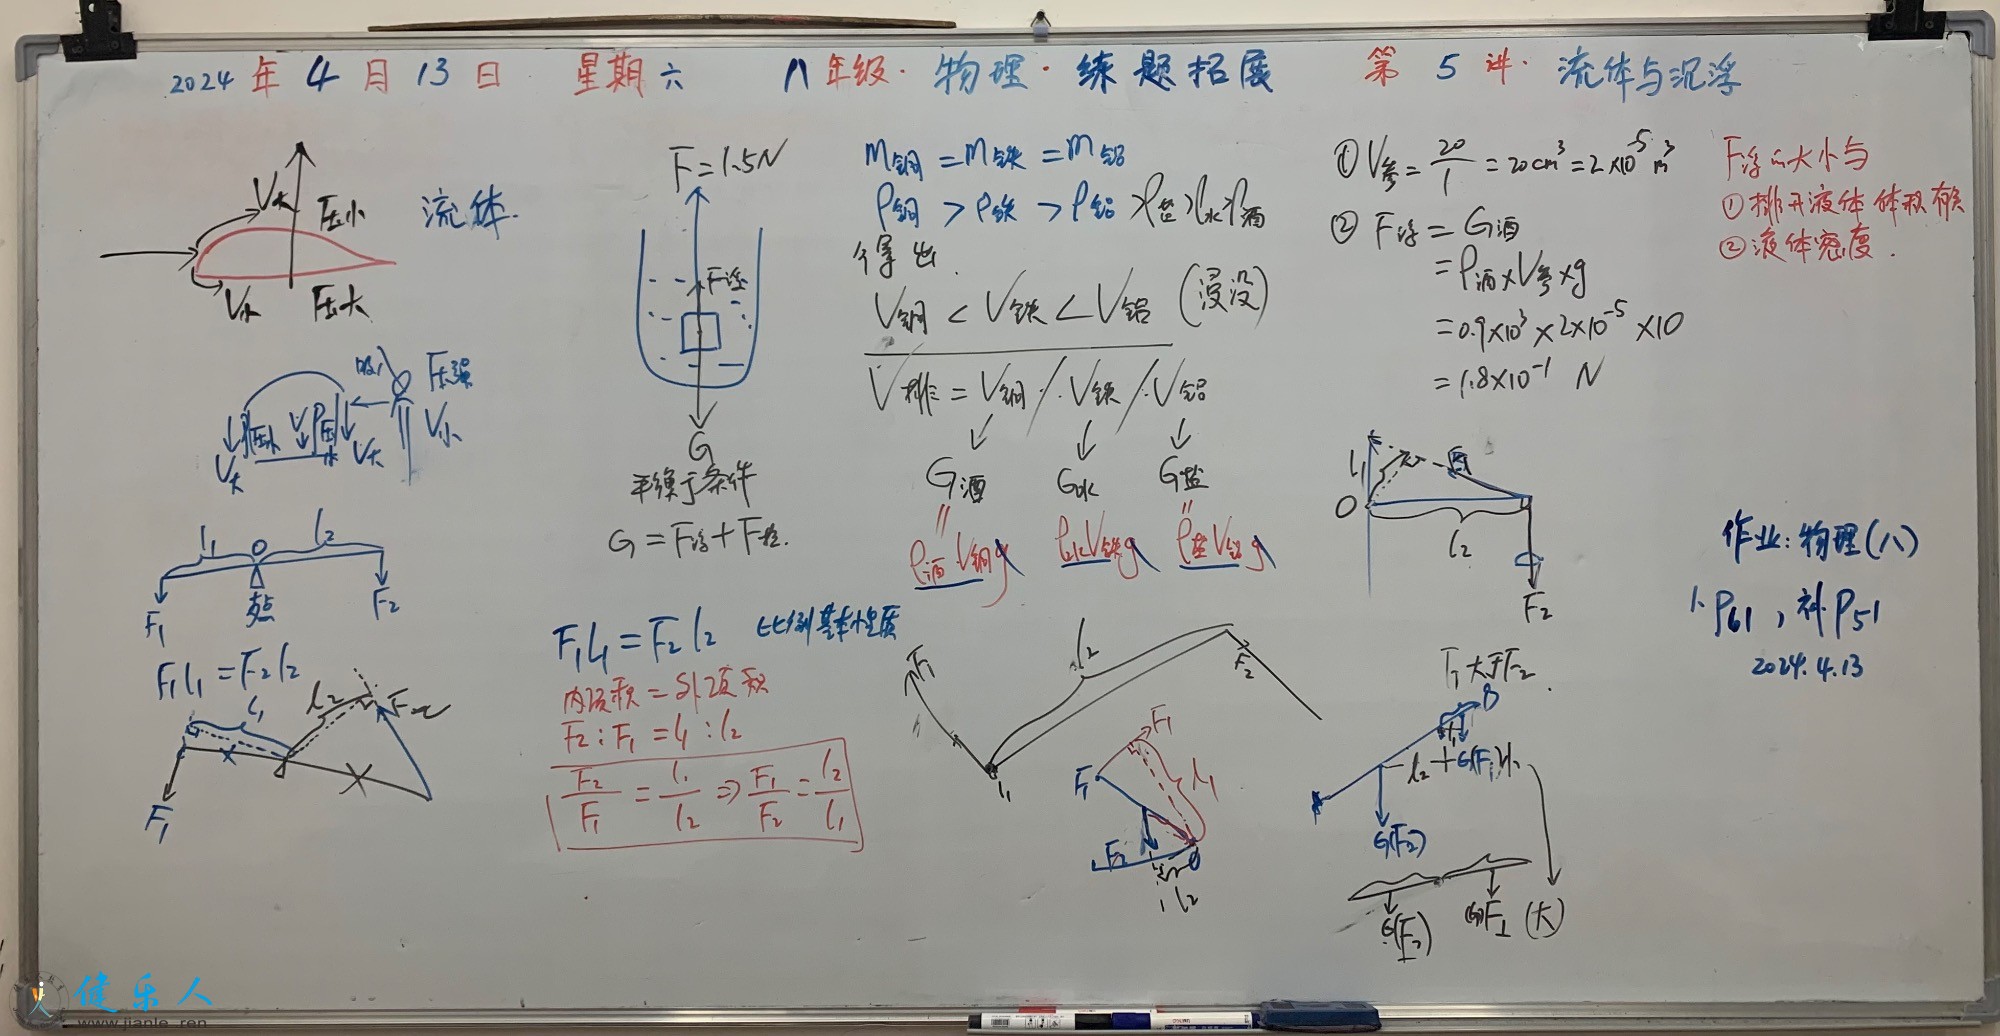 2024年4月13日 星期六 八年级·物理·练题拓展 第5讲·流体与沉浮
V大
F压小
流体.
V小
F压大
吸
F压强
V小
V大
V大
l₁ O l₂
F₁ 支点 F₂
F₁l₁=F₂l₂
l₁ l₂ F₂
F₁
F=1.5N
F浮
G
平衡条件
G=F浮+F拉.
F₁l₁=F₂l₂ 比例基本性质
内项积=外项积
F₂:F₁=l₁:l₂
F₂/F₁=l₁/l₂⇒F₁/F₂=l₂/l₁
m铜=m铁=m铝
ρ铜>ρ铁>ρ铝>ρ盐>ρ水>ρ酒
得出
V铜<V铁<V铝(浸没)
V排=V铜/·V铁/·V铝
G酒 G水 G盐
ρ酒·V铜g ρ水V铁g ρ盐V铝g
F₁ l₂ F₂
l₁
F₁
F₁ l₁
F₂ O
l₂
①V参=20/1=20cm³=2×10⁻⁵m³
②F浮=G酒
=ρ酒×V参×g
=0.9×10³×2×10⁻⁵×10
=1.8×10⁻¹ N
l₁
O
l₂
F₂
F₁大于F₂.
B
l₂
G(F₂)
G(F₂) F₁(大)
F浮的大小与
①排开液体体积有关
②液体密度.
作业:物理(八)
1.P61,补P51
2024.4.13
健乐人
www.jianle.ren